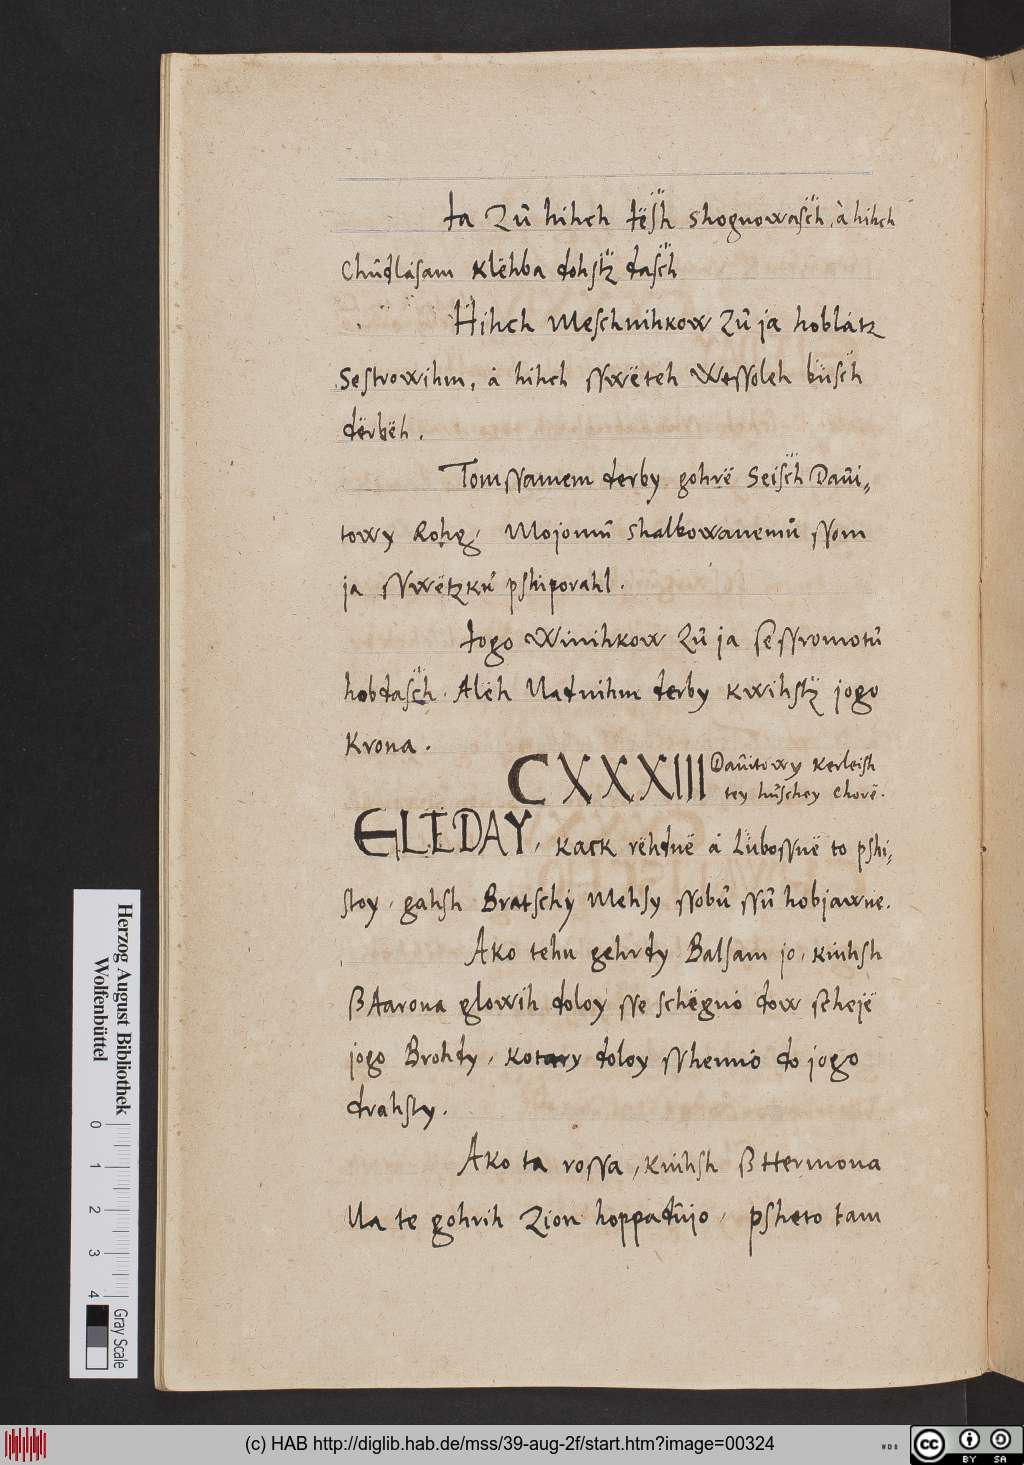 ta Zů hihch tësh shognowasch, à hihch
Chůdlásam Klëhba dohstz dasch
Hihch Meschnihkow Zů ja hoblátz
Sestrowihm, à hihch sswëteh Wessoleh büsch
dërbëh.
Tomssamem derby gohrë Seisch Daůi⸗
towy Rohg, Mojomů shalkowanemů ssom
ja SSwëtzku pshiporahl.
Jogo Winihkow Zů ja se ssromotů
hobdasch. Alëh Nadnihm derby kwihstz jogo
Krona.
CXXXIII Daůitowy Kerleish
tey hůschey Chorë.
GLEDAY, kack rëhdnë á Lübossnë to pshi⸗
stoy, gahsh Bratschÿ Mehsy ssobů ssů hobjawne.
Ako tehn gehrdy Balsam jo, kiuhsh
ß Aarona glowih doloy sse schëgnó dow scheje
jogo Brohdy, kotary doloy sshennó do jogo
drahsty.
Ako ta rossa, kiuhsh ß Hermona
Na te gohrih Zion hoppadůjo, psheto tam
Herzog August Bibliothek
Wolfenbüttel
0 1 2 3 4
Gray Scale
(c) HAB http://diglib.hab.de/mss/39-aug-2f/start.htm?image=00324
WDB
cc BY SA